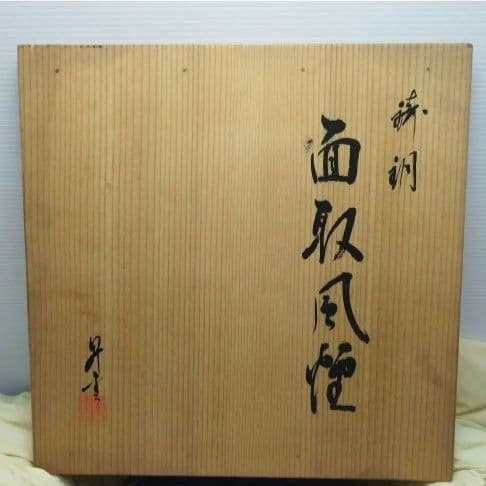 鋳銅
面取風煙